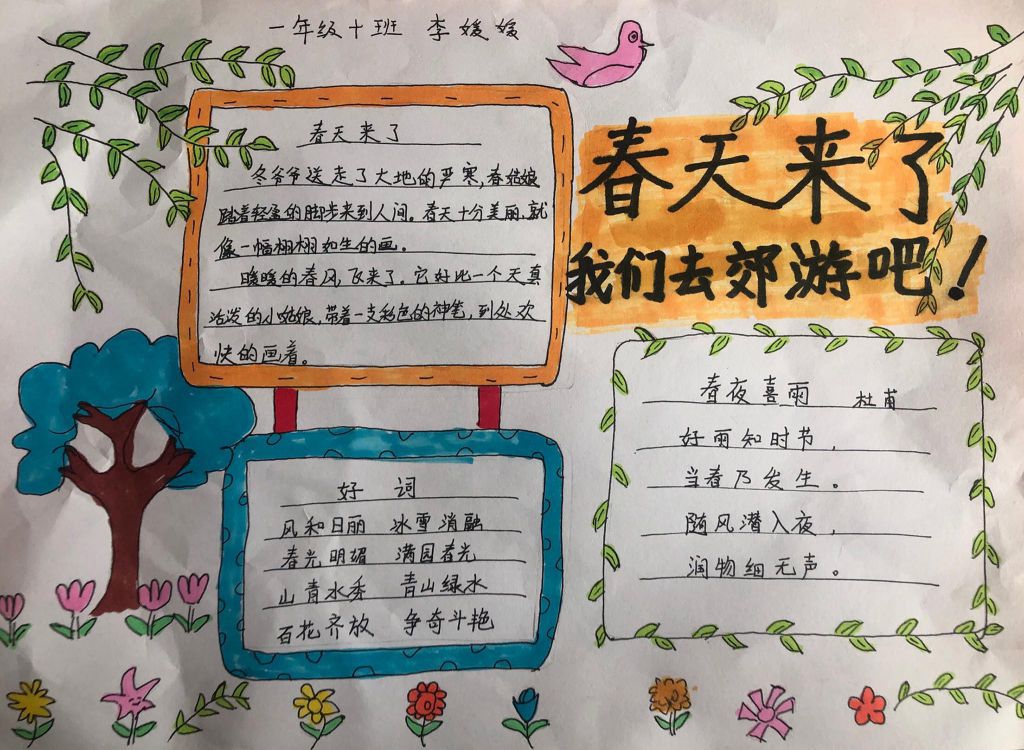 一年级十班 李媛媛
春天来了
冬爷爷送走了大地的严寒,春姑娘
踏着轻盈的脚步来到人间。春天十分美丽,就
像一幅栩栩如生的画。
暖暖的春风飞来了。它好比一个天真
活泼的小姑娘,带着一支彩色的神笔,到处欢
快的画着。
春天来了
我们去郊游吧!
好词
风和日丽 冰雪消融
春光明媚 满园春光
山青水秀 青山绿水
百花齐放 争奇斗艳
春夜喜雨 杜甫
好雨知时节,
当春乃发生。
随风潜入夜,
润物细无声。